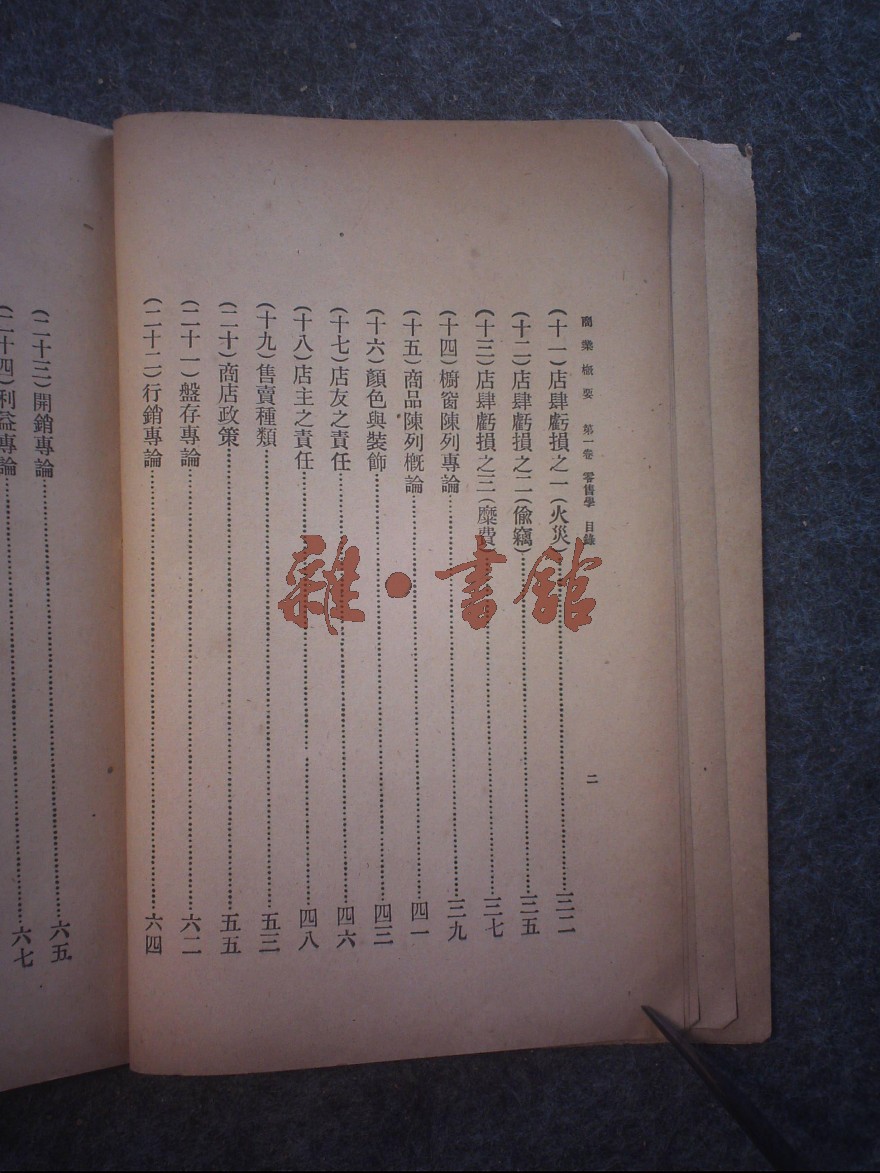 商業概要 第一卷 零售學 目錄 二
(十一)店肆虧損之一(火災)……三二
(十二)店肆虧損之二(偸竊)……三五
(十三)店肆虧損之三(糜費)……三七
(十四)櫥窗陳列專論……三九
(十五)商品陳列槪論……四一
(十六)顏色與裝飾……四三
(十七)店友之責任……四六
(十八)店主之責任……四八
(十九)售賣種類……五三
(二十)商店政策……五五
(二十一)盤存專論……六二
(二十二)行銷專論……六四
(二十三)開銷專論……六五
(二十四)利益專論……六七
雜·書館